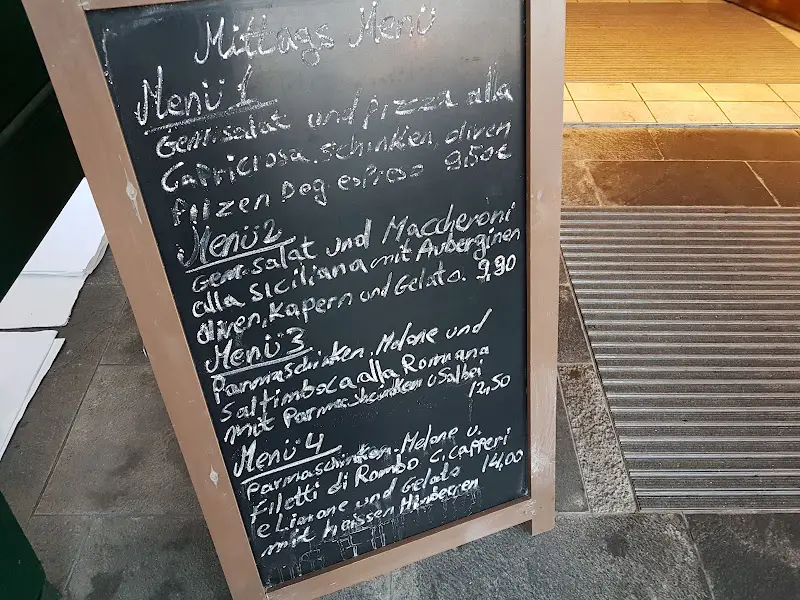 Mittags Menü
Menü 1
Gem.salat und pizza alla
Capriciosa, schinken, oliven
pilzen Deg espreso 9,50€
Menü 2
Gem.salat und Maccheroni
alla siciliana mit Auberginen
oliven, Kapern und Gelato. 9,90
Menü 3
Parmaschinken, Melone und
Saltimboca alla Romana
mit Parmaschinken u Salbei
12,50
Menü 4
Parmaschinken-Melone u.
Filetti di Rombo C. Cafferi
e Limone und Gelato 14,00
mit heissen Hinbeeren